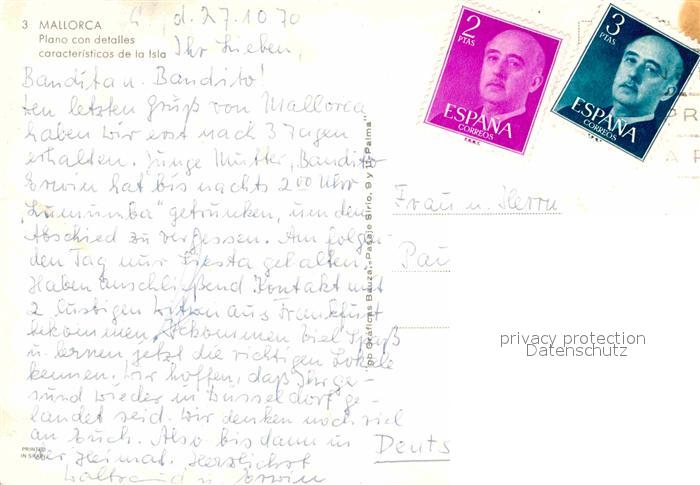 3 MALLORCA
Plano con detalles
característicos de la Isla
d. 27.10.70
Ihr Lieben,
Bandita u. Bandito!
den letzten Gruß von Mallorca
haben wir erst nach 3 Tagen
erhalten. Junge Mutter, Bandito
Erwin hat bis nachts 2 00 Uhr
"Lumumba" getrunken, um den
Abschied zu vergessen. Am folgen-
den Tag nur Siesta gehalten.
Haben anschließend Kontakt mit
2 lustigen Witwen aus Frankfurt
bekommen, bekommen viel Spaß
u. lernen jetzt die richtigen Lokale
kennen. Wir hoffen, daß Ihr ge-
sund wieder in Düsseldorf ge-
landet seid. Wir denken noch viel
an Euch. Also bis dann in
der Heimat. Herzlichst
Waltraud u. Erwin
PRINTED
IN SPAIN
Gráficas Bauzá.-Pasaje Sirio, 9 y 11-Palma
2
PTAS
ESPAÑA
CORREOS
F.N.M.T.
3
PTAS
ESPAÑA
CORREOS
F.N.M.T.
Frau u. Herrn
Pau
Deuts
privacy protection
Datenschutz